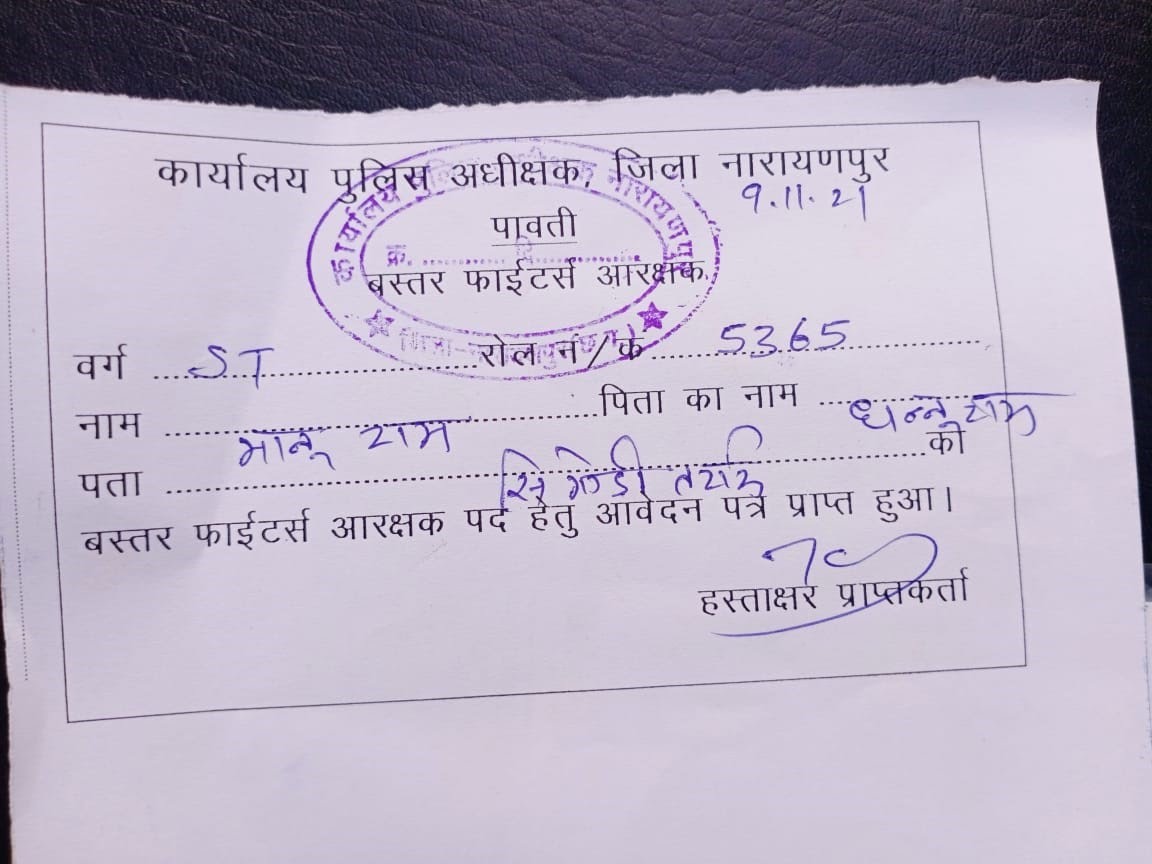 कार्यालय पुलिस अधीक्षक, जिला नारायणपुर
9.11.21
पावती
बस्तर फाईटर्स आरक्षक
वर्ग ....ST....................रोल नं/के.......5365..............
नाम ....मानू राम....................पिता का नाम ....धन्नू राम
पता ........................................को
बस्तर फाईटर्स आरक्षक पद हेतु आवेदन पत्र प्राप्त हुआ।
हस्ताक्षर प्राप्तकर्ता
कार्यालय पुलिस अधीक्षक नारायणपुर
क्र. .................... दि ....................